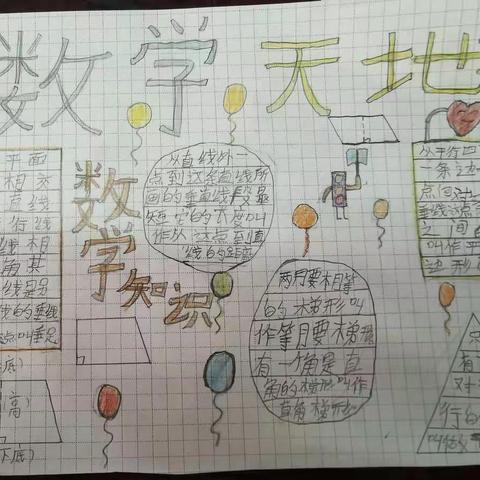 数学天地
平面
相交
直线
行线
线相
角其
线是另
的垂线
点叫垂足
底)
高)
下底)
数学知识
从直线外
点到这条直线所
画的垂直线段最
短,它的长度叫
作从这点到直
线的距离
两月要相等
的梯形叫
作等月要梯形
有一个角是直
角的梯形叫作
直角梯形
从平行四
一条边
点向对
垂线这点
之间
叫作平
边形
只
有
对
行的
叫做